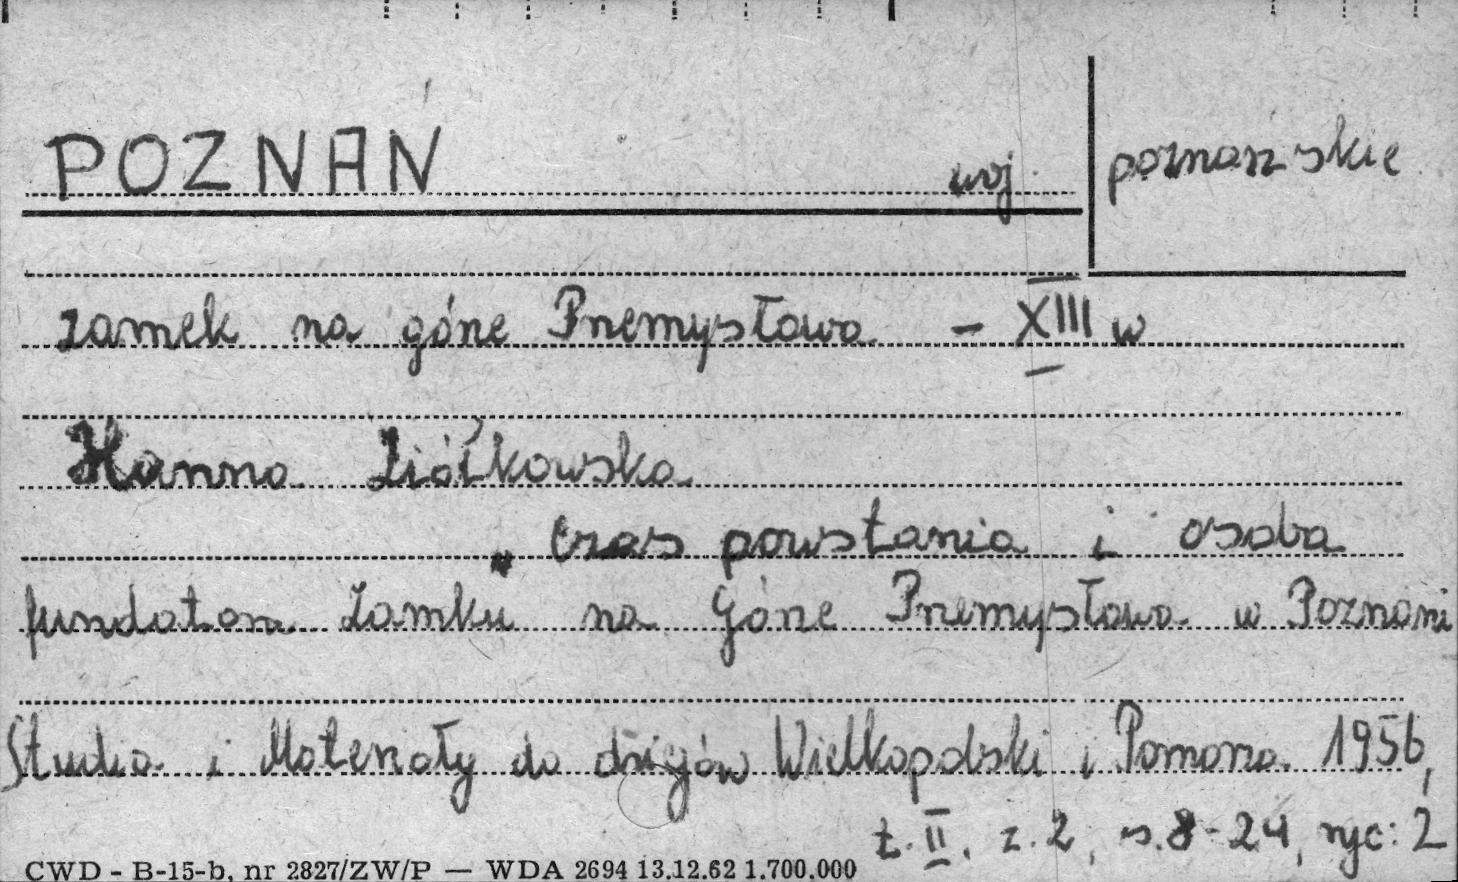 POZNAŃ woj. poznańskie
zamek na górze Przemysława – XIII w
Hanna Ziółkowska
„Czas powstania i osoba
fundatora Zamku na Górze Przemysława w Poznani
Studia i Materiały do dziejów Wielkopolski i Pomorza. 1956,
t. II, z. 2, s. 8-24, ryc: 2
CWD - B-15-b, nr 2827/ZW/P — WDA 2694 13.12.62 1.700.000